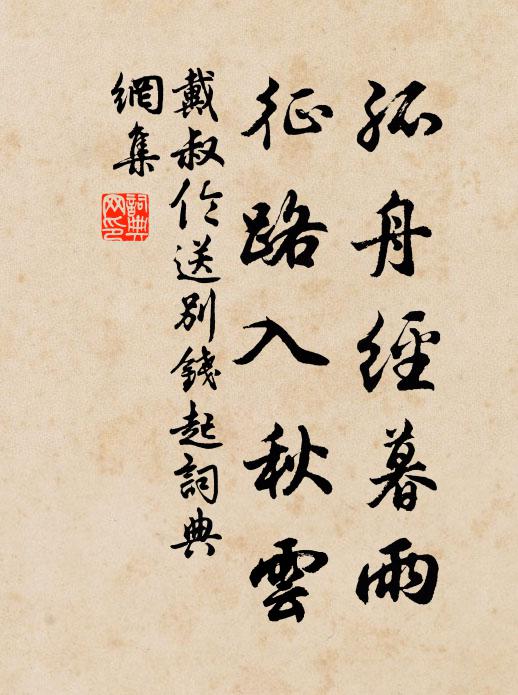 孤舟經暮雨
征路入秋雲
戴叔伦送別錢起詞典
網集
詞典
网印